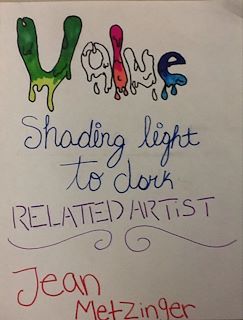 Value
Shading light
to dark
RELATED ARTIST
Jean
Metzinger